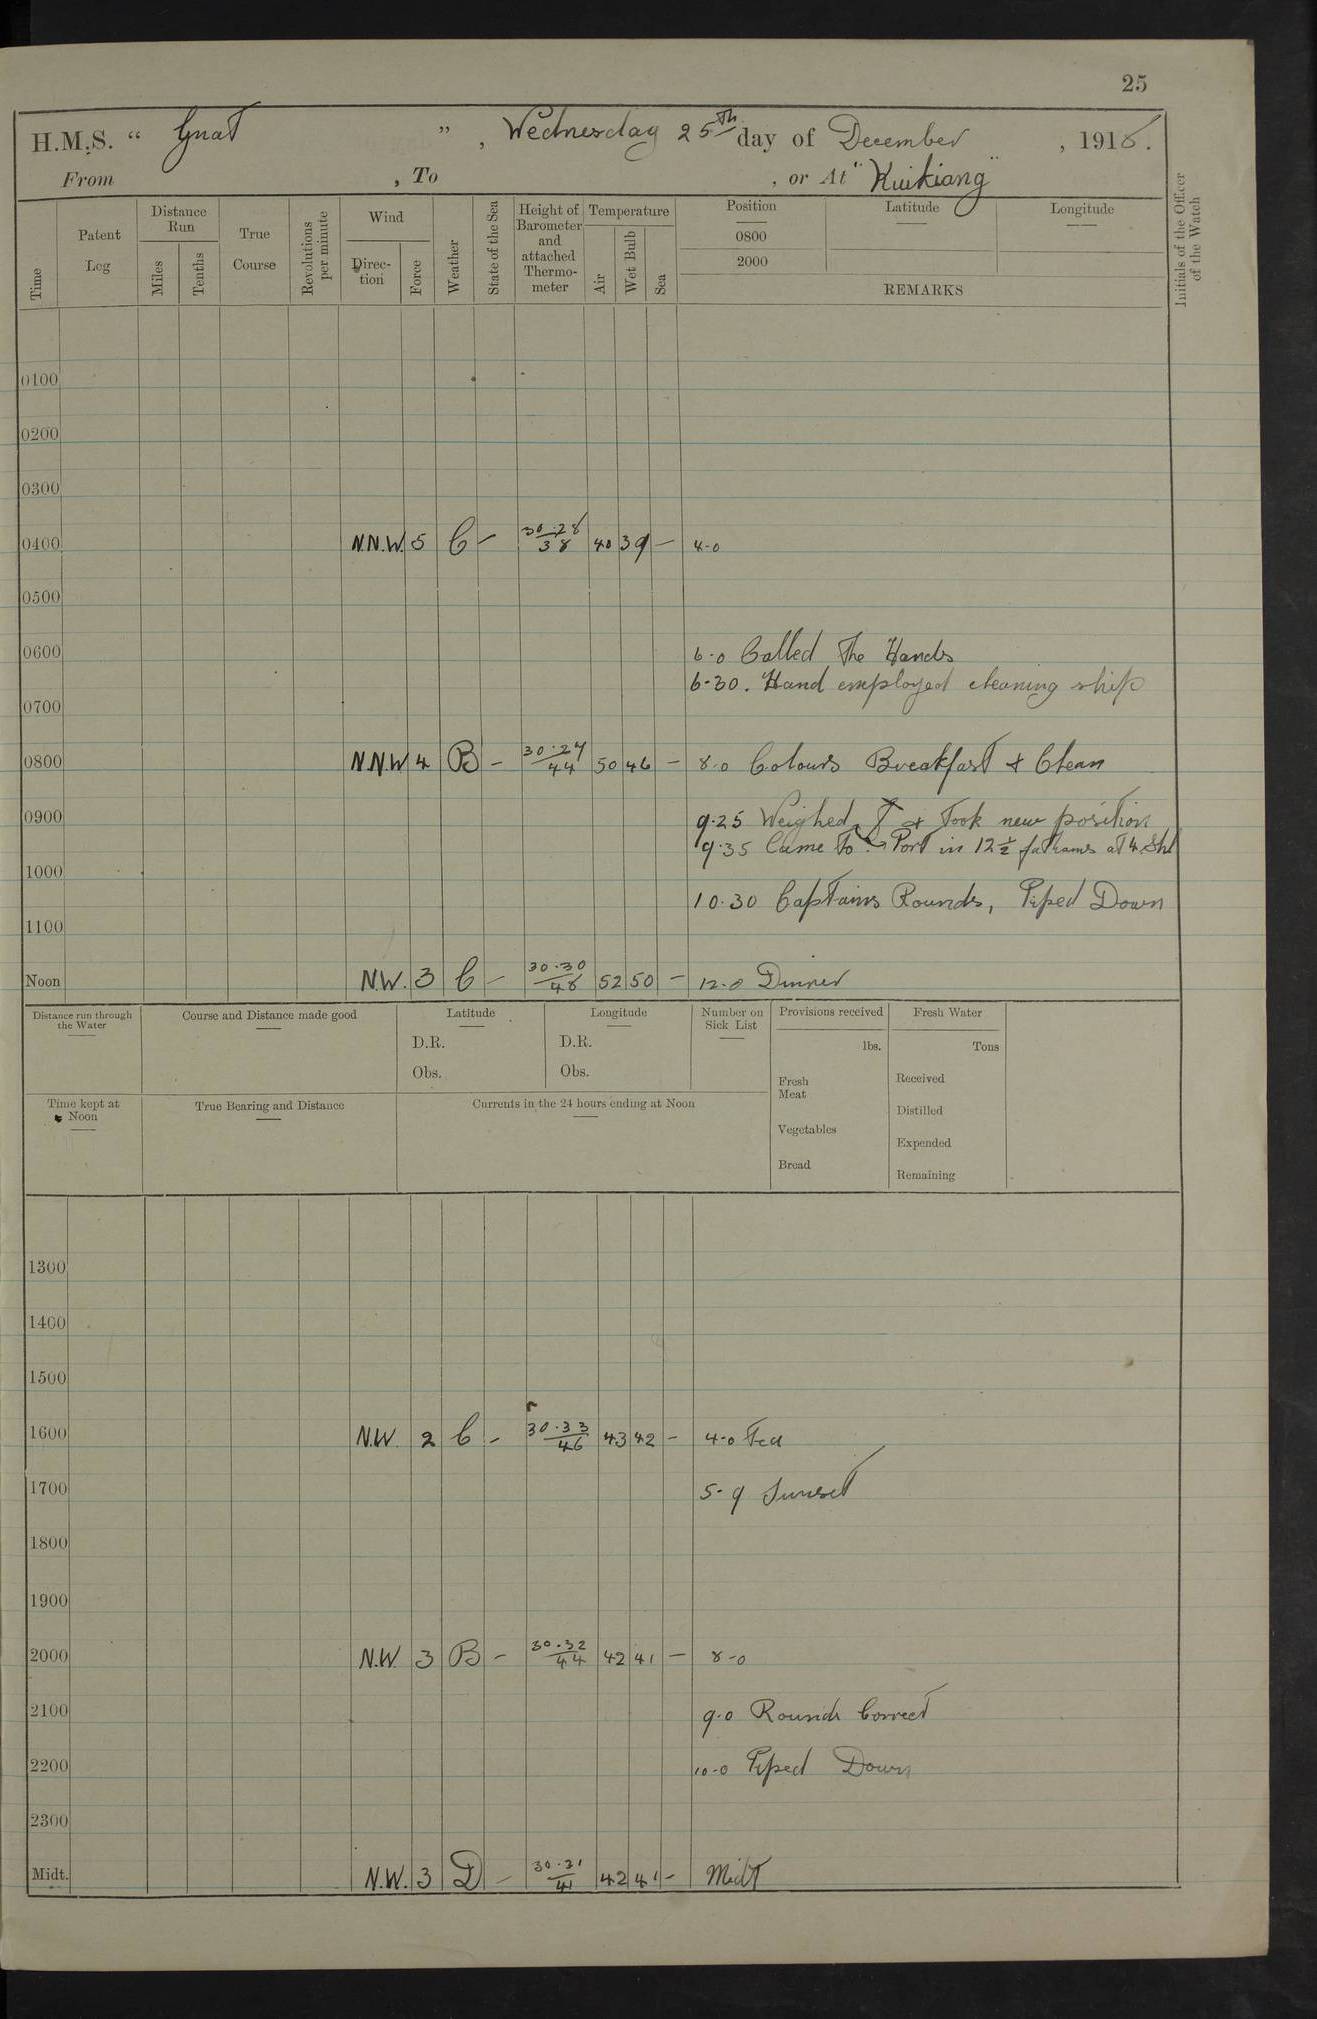 25
H.M.S. “ Gnat ” , Wednesday 25th day of December , 1918.
From , To , or At "Kuikiang"
Initials of the Officer of the Watch
Time
Patent Log
Distance Run
Miles
Tenths
True Course
Revolutions per minute
Wind
Direction
Force
Weather
State of the Sea
Height of Barometer and attached Thermometer
Temperature
Air
Wet Bulb
Sea
Position
Latitude
Longitude
0800
2000
REMARKS
0100
0200
0300
0400 N.N.W. 5 C - 30.28 38 40 39 - 4-0
0500
0600 6-0 Called The Hands
6-30. Hand employed cleaning ship
0700
0800 N.N.W 4 B - 30.27 44 50 46 - 8-0 Colours Breakfast & Clean
0900 9.25 Weighed & Took new position
9.35 Came To Port in 12½ fathams at 4. Shl
1000
10.30 Captains Rounds, Piped Down
1100
Noon N.W. 3 C - 30.30 48 52 50 - 12-0 Dinner
Distance run through the Water
Course and Distance made good
Latitude
D.R.
Obs.
Longitude
D.R.
Obs.
Number on Sick List
Provisions received
lbs.
Fresh Meat
Vegetables
Bread
Fresh Water
Tons
Received
Distilled
Expended
Remaining
Time kept at Noon
True Bearing and Distance
Currents in the 24 hours ending at Noon
1300
1400
1500
1600 N.W. 2 C - 30.33 46 43 42 - 4-0 Tea
1700 5-9 Sunset
1800
1900
2000 N.W. 3 B - 30.32 44 42 41 - 8-0
2100 9-0 Rounds Correct
2200 10-0 Piped Down
2300
Midt. N.W. 3 D - 30.31 41 42 41 - Midt